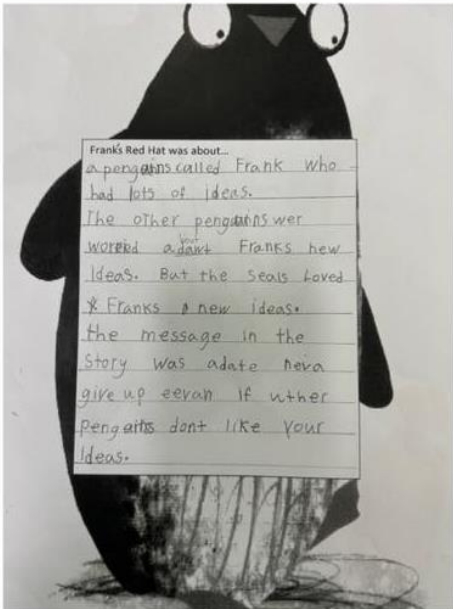 Frank's Red Hat was about...
a pengains called Frank who
had lots of ideas.
The other penguins wer
worried adawt Franks new
Ideas. But the seals Loved
Franks new ideas.
the message in the
Story was adate neva
give up eevan if uther
Pengains dont like your
Ideas.